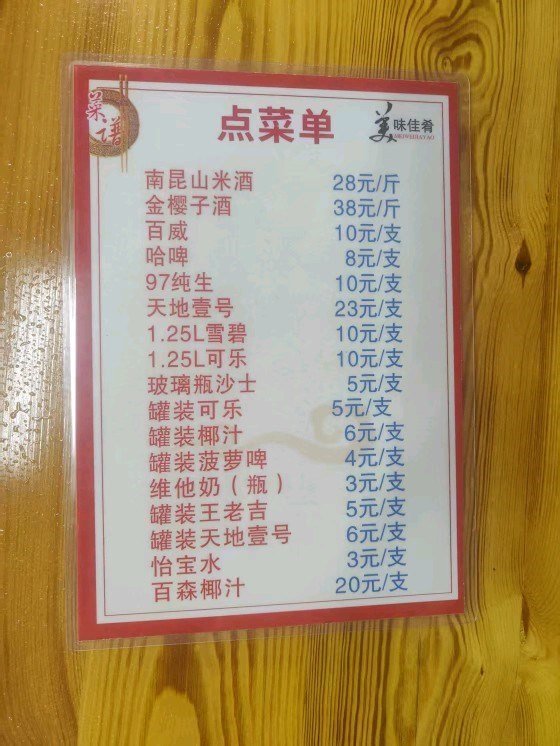 菜谱
点菜单
美味佳肴
MEIWEIJIAYAO
南昆山米酒 28元/斤
金樱子酒 38元/斤
百威 10元/支
哈啤 8元/支
97纯生 10元/支
天地壹号 23元/支
1.25L雪碧 10元/支
1.25L可乐 10元/支
玻璃瓶沙士 5元/支
罐装可乐 5元/支
罐装椰汁 6元/支
罐装菠萝啤 4元/支
维他奶（瓶） 3元/支
罐装王老吉 5元/支
罐装天地壹号 6元/支
怡宝水 3元/支
百森椰汁 20元/支